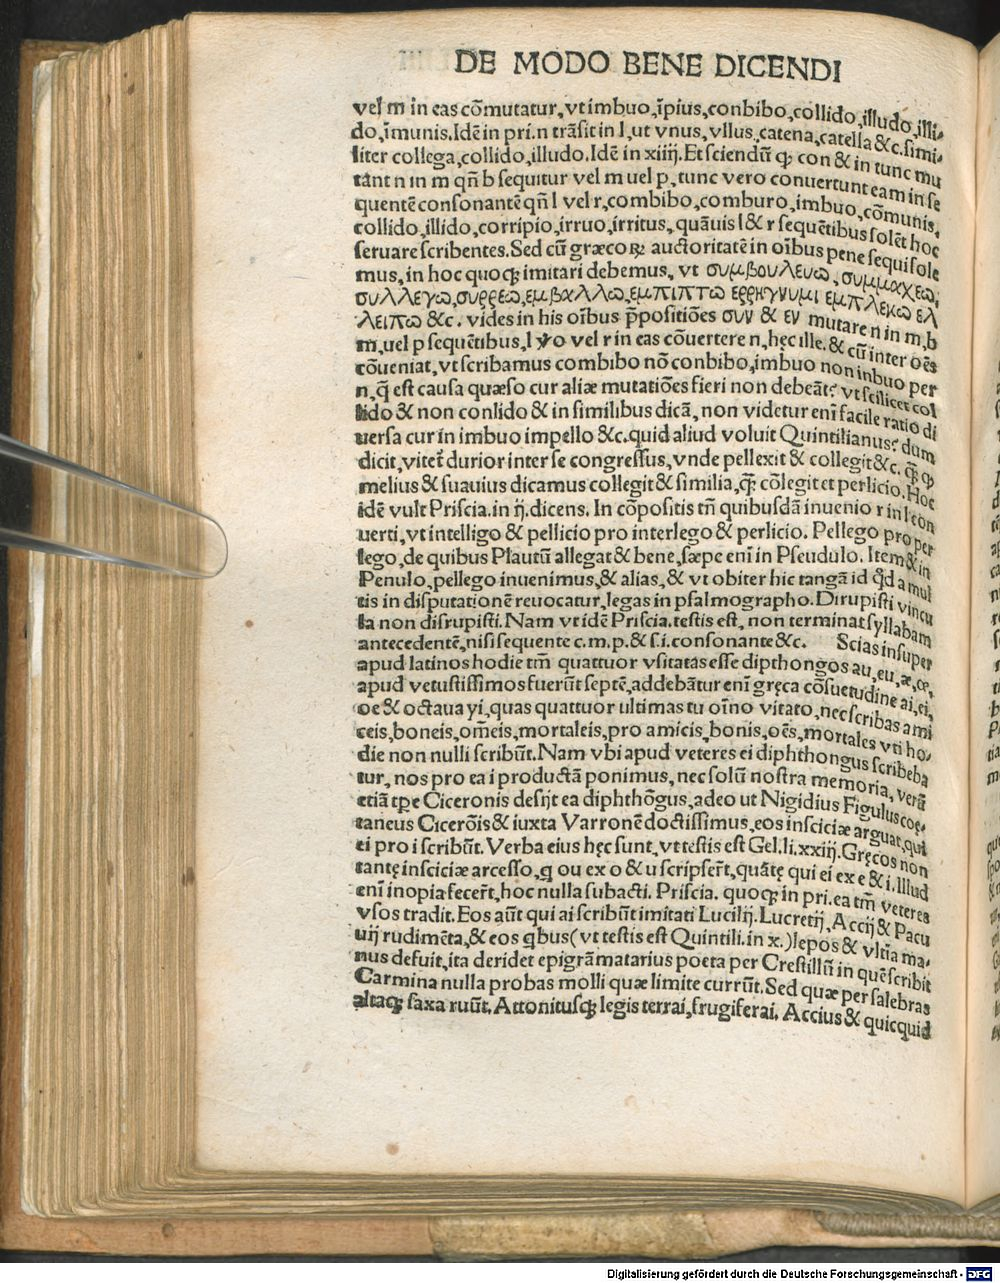 DE MODO BENE DICENDI
vel m in eas cōmutatur, vt imbuo, īpius, conbibo, collido, illudo, illi-
do, īmunis. Idē in pri. n trāsit in l, ut vnus, vllus, catena, catella &c. simi-
liter collega, collido, illudo. Idē in xiiij. Et sciendū ꝙ con & in tunc mu
tant n in m qñ b sequitur vel m uel p, tunc vero conuertunt eam in se
quentē consonantē qñ l vel r, combibo, comburo, imbuo, cōmunis,
collido, illido, corripio, irruo, irritus, quāuis l & r sequētibus solēt hoc
seruare scribentes. Sed cū græcoꝝ auctoritatē in oībus pene sequi sole
mus, in hoc quoqꝫ imitari debemus, vt συμβουλευω, συμμαχεω,
συλλεγω, συρρεω, εμβαλλω, εμπιπτω ερρηγνυμι εμπλεκω ελ
λειπω &c. vides in his oībus p̄positiōes συν & εν mutare n in m, b
m, uel p sequētibus, l v̊o vel r in eas cōuertere n, hęc ille. & cū inter oēs
cōueniat, vt scribamus combibo nō conbibo, imbuo non inbuo per
n, q̄ est causa quæso cur aliæ mutatiōes fieri non debeāt? vt scilicet col
lido & non conlido & in similibus dicā, non videtur enī facile ratio di
uersa cur in imbuo impello &c. quid aliud voluit Quintilianus? dum
dicit, vitet̄ durior inter se congressus, vnde pellexit & collegit &c. ꝙ̄ ꝙ
melius & suauius dicamus collegit & similia, ꝙ̄ cōlegit et perlicio. Hoc
idē vult Priscia. in ij. dicens. In cōpositis tñ quibusdā inuenio r in l con
uerti, vt intelligo & pellicio pro interlego & perlicio. Pellego pro per
lego, de quibus Plautū allegat & bene, sæpe enī in Pseudulo. Item & in
Penulo, pellego inuenimus, & alias, & vt obiter hic tangā id qd̄ a mul
tis in disputationē reuocatur, legas in psalmographo. Dirupisti vincu
la non disrupisti. Nam vt idē Priscia. testis est, non terminat syllabam
antecedentē, nisi sequente c. m. p. & s. i. consonante &c. Scias insuper
apud latinos hodie tm̄ quattuor vsitatas esse dipthongos au, eu, æ, œ,
apud vetustissimos fuerūt septē, addebātur enī gręca cōsuetudine ai, ei,
oe & octaua yi, quas quattuor ultimas tu oīno vitato, nec scribas ami
ceis, boneis, om̄eis, mortaleis, pro amicis, bonis, oēs, mortales vti ho-
die non nulli scribūt. Nam vbi apud veteres ei diphthongus scribeba
tur, nos pro ea i productā ponimus, nec solū nostra memoria, verū
etiā tp̄e Ciceronis desijt ea diphthōgus, adeo ut Nigidius Figulus coę-
taneus Cicerōis & iuxta Varronē doctissimus, eos insciciæ arguat, qui
ei pro i scribūt. Verba eius hęc sunt, vt testis est Gel. li. xxiij. Gręcos non
tantę insciciæ arcesso, q ou ex o & u scripser̄t, quātę qui ei ex e & i. Illud
enī inopia fecer̄t, hoc nulla subacti. Priscia. quoqꝫ in pri. ea tm̄ veteres
vsos tradit. Eos aūt qui ai scribūt imitati Lucilij. Lucretij, Accij & Pacu
uij rudimēta, & eos qbus (vt testis est Quintili. in x.) lepos & vltīa ma-
nus defuit, ita deridet epigrāmatarius poeta per Crestillū in quē scribit
Carmina nulla probas molli quæ limite currūt. Sed quæ per salebras
altaqꝫ saxa ruūt. Attonitusqꝫ legis terrai, frugiferai. Accius & quicquid
Digitalisierung gefördert durch die Deutsche Forschungsgemeinschaft - DFG